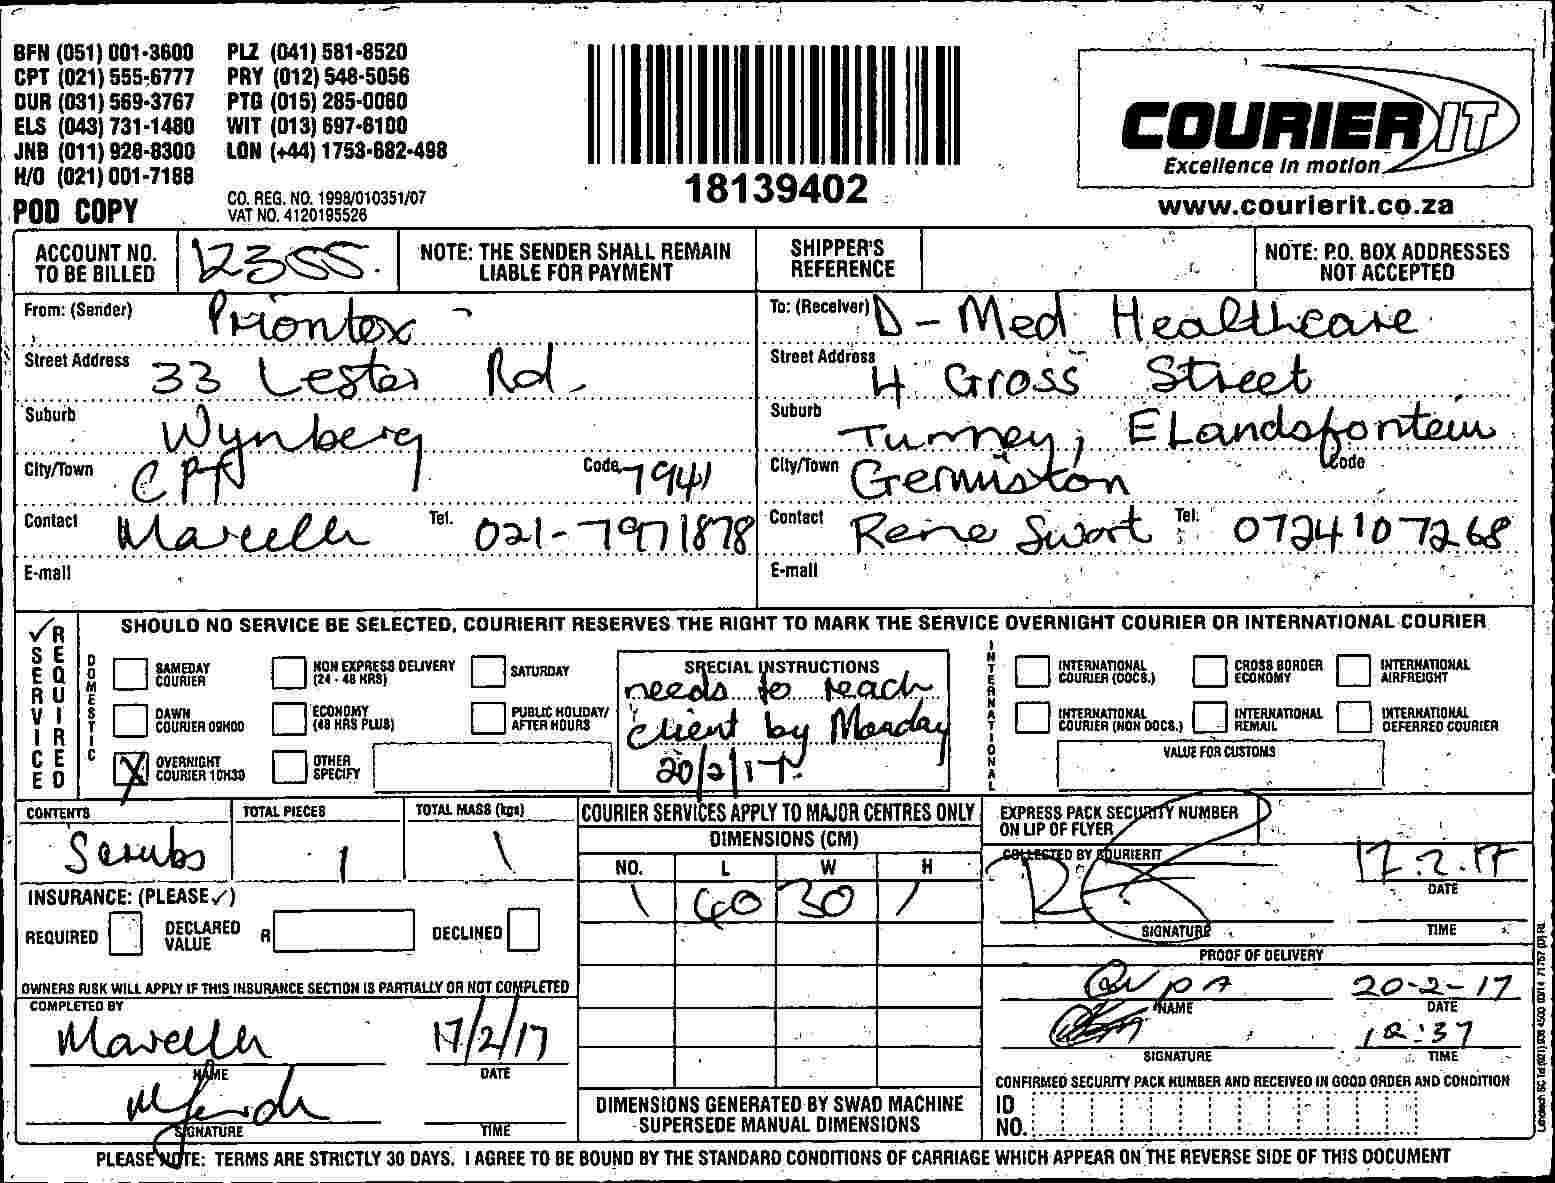 BFN (051) 001-3600 PLZ (041) 581-8520
CPT (021) 555-6777 PRY (012) 548-5056
DUR (031) 569-3767 PTG (015) 285-0060
ELS (043) 731-1480 WIT (013) 697-6100
JNB (011) 928-8300 LON (+44) 1753-682-498
H/O (021) 001-7188
POD COPY
CO. REG. NO. 1998/010351/07
VAT NO. 4120195526
18139402
COURIER IT
Excellence in motion
www.courierit.co.za
ACCOUNT NO. TO BE BILLED 12355.
NOTE: THE SENDER SHALL REMAIN LIABLE FOR PAYMENT
SHIPPER'S REFERENCE
NOTE: P.O. BOX ADDRESSES NOT ACCEPTED
From: (Sender) Priontex
Street Address 33 Lester Rd.
Suburb Wynberg
City/Town CPT Code 7941
Contact Marcelle Tel. 021-7971878
E-mail
To: (Receiver) D-Med Healthcare
Street Address 4 Gross Street
Suburb Tunney, ELandsfontein
City/Town Germiston Code
Contact Rene Swart Tel. 0724107268
E-mail
✓ SERVICE REQUIRED
SHOULD NO SERVICE BE SELECTED, COURIERIT RESERVES THE RIGHT TO MARK THE SERVICE OVERNIGHT COURIER OR INTERNATIONAL COURIER
DOMESTIC
SAMEDAY COURIER
NON EXPRESS DELIVERY (24 - 48 HRS)
SATURDAY
DAWN COURIER 09H00
ECONOMY (48 HRS PLUS)
PUBLIC HOLIDAY/ AFTER HOURS
X OVERNIGHT COURIER 10H30
OTHER SPECIFY
SPECIAL INSTRUCTIONS
needs to reach
client by Monday
20/2/17.
INTERNATIONAL
INTERNATIONAL COURIER (DOCS.)
CROSS BORDER ECONOMY
INTERNATIONAL AIRFREIGHT
INTERNATIONAL COURIER (NON DOCS.)
INTERNATIONAL REMAIL
INTERNATIONAL DEFERRED COURIER
VALUE FOR CUSTOMS
CONTENTS Scrubs
TOTAL PIECES 1
TOTAL MASS (kgs) 1
INSURANCE: (PLEASE ✓)
REQUIRED DECLARED VALUE R DECLINED
OWNERS RISK WILL APPLY IF THIS INSURANCE SECTION IS PARTIALLY OR NOT COMPLETED
COMPLETED BY
Marcelle 17/2/17
NAME DATE
SIGNATURE TIME
COURIER SERVICES APPLY TO MAJOR CENTRES ONLY
DIMENSIONS (CM)
NO. L W H
1 40 30 1
DIMENSIONS GENERATED BY SWAD MACHINE SUPERSEDE MANUAL DIMENSIONS
EXPRESS PACK SECURITY NUMBER ON LIP OF FLYER
COLLECTED BY COURIERIT
17.2.17
DATE
SIGNATURE TIME
PROOF OF DELIVERY
20-2-17
NAME DATE
12:37
SIGNATURE TIME
CONFIRMED SECURITY PACK NUMBER AND RECEIVED IN GOOD ORDER AND CONDITION
ID NO.
PLEASE NOTE: TERMS ARE STRICTLY 30 DAYS. I AGREE TO BE BOUND BY THE STANDARD CONDITIONS OF CARRIAGE WHICH APPEAR ON THE REVERSE SIDE OF THIS DOCUMENT